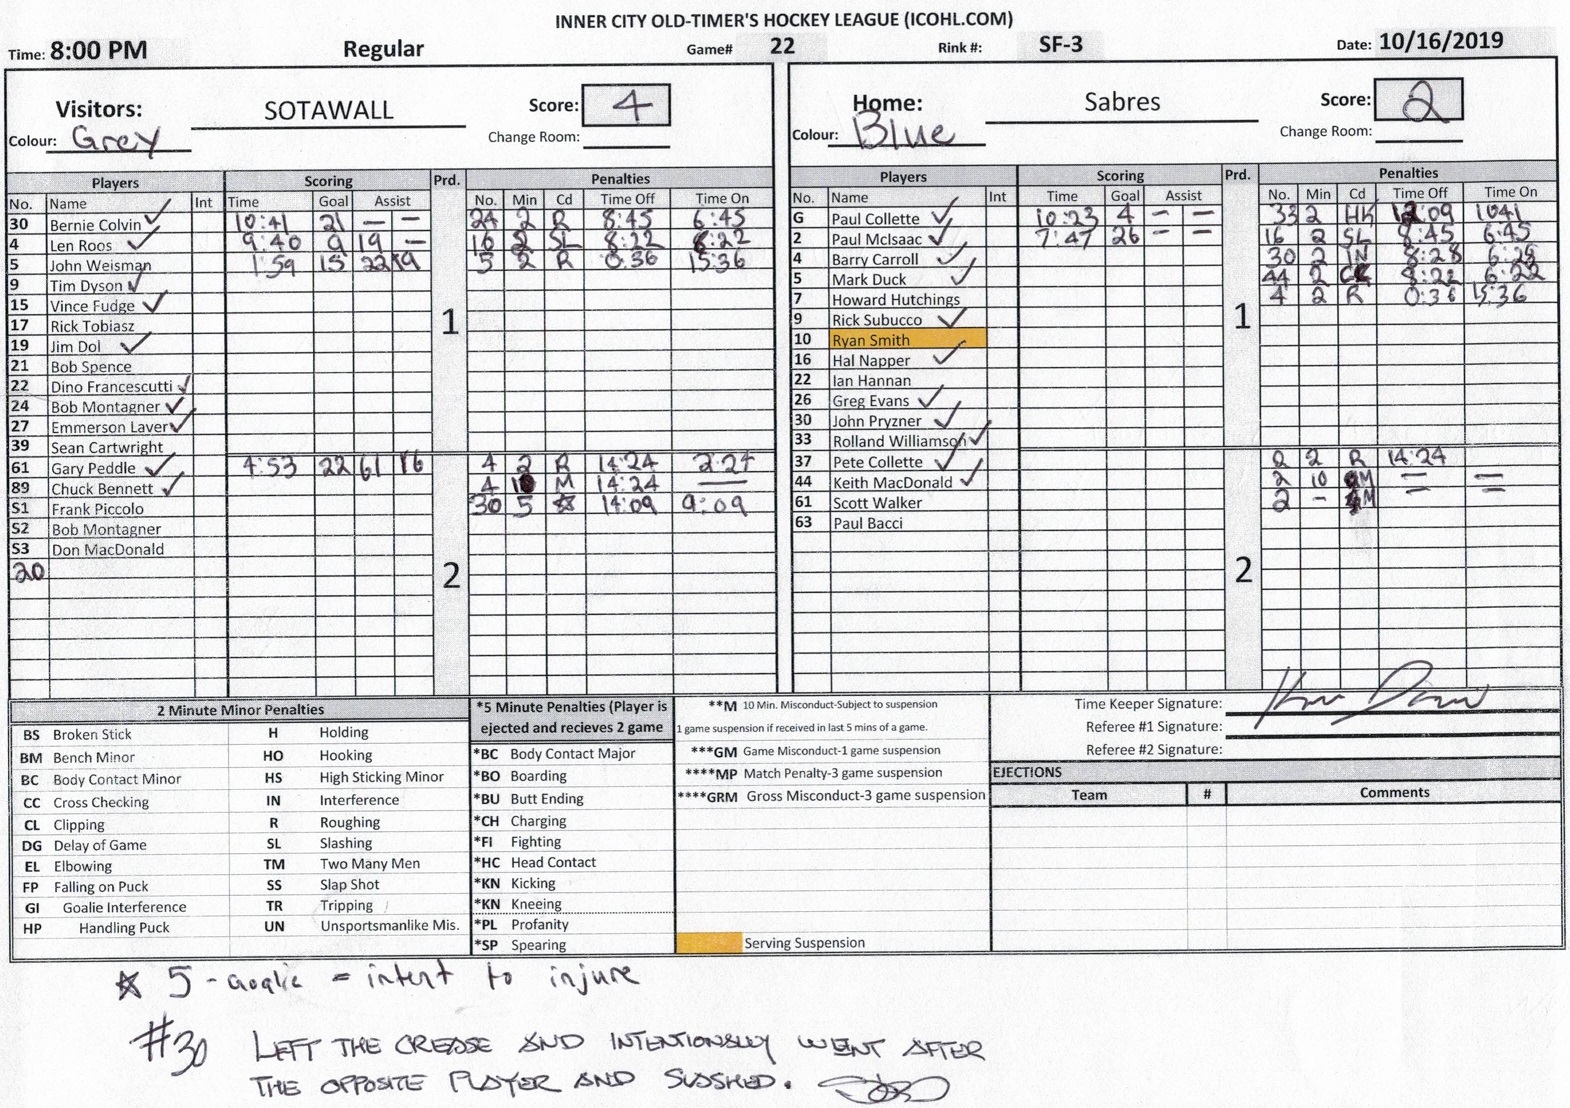 INNER CITY OLD-TIMER'S HOCKEY LEAGUE (ICOHL.COM)
Time: 8:00 PM Regular Game# 22 Rink #: SF-3 Date: 10/16/2019
Visitors: SOTAWALL Score: 4
Colour: Grey Change Room:
Players Scoring Prd. Penalties
No. Name Int Time Goal Assist No. Min Cd Time Off Time On
30 Bernie Colvin ✓ 10:41 21 — — 24 2 R 8:45 6:45
4 Len Roos ✓ 9:40 9 19 — 16 2 SL 8:22 6:22
5 John Weisman 1:59 15 22 19 5 2 R 0:36 15:36
9 Tim Dyson ✓
15 Vince Fudge ✓
1
17 Rick Tobiasz
19 Jim Dol ✓
21 Bob Spence
22 Dino Francescutti ✓
24 Bob Montagner ✓
27 Emmerson Laver ✓
39 Sean Cartwright
61 Gary Peddle ✓ 4:53 22 61 16 4 2 R 14:24 2:24
89 Chuck Bennett ✓ 4 10 M 14:24 —
S1 Frank Piccolo 30 5 ☆ 14:09 9:09
S2 Bob Montagner
S3 Don MacDonald
20
2
Home: Sabres Score: 2
Colour: Blue Change Room:
Players Scoring Prd. Penalties
No. Name Int Time Goal Assist No. Min Cd Time Off Time On
G Paul Collette ✓ 10:23 4 — — 33 2 HK 12:09 1041
2 Paul McIsaac ✓ 7:47 26 — — 16 2 SL 8:45 6:45
4 Barry Carroll ✓ 30 2 IN 8:28 6:28
5 Mark Duck ✓ 44 2 8:22 6:22
7 Howard Hutchings 4 2 R 0:36 15:36
9 Rick Subucco ✓
1
10 Ryan Smith
16 Hal Napper ✓
22 Ian Hannan
26 Greg Evans ✓
30 John Pryzner ✓
33 Rolland Williamson ✓
37 Pete Collette ✓ 2 2 R 14:24
44 Keith MacDonald ✓ 2 10 — —
61 Scott Walker 2 - — —
63 Paul Bacci
2
2 Minute Minor Penalties
BS Broken Stick H Holding
BM Bench Minor HO Hooking
BC Body Contact Minor HS High Sticking Minor
CC Cross Checking IN Interference
CL Clipping R Roughing
DG Delay of Game SL Slashing
EL Elbowing TM Two Many Men
FP Falling on Puck SS Slap Shot
GI Goalie Interference TR Tripping
HP Handling Puck UN Unsportsmanlike Mis.
*5 Minute Penalties (Player is
ejected and recieves 2 game
*BC Body Contact Major
*BO Boarding
*BU Butt Ending
*CH Charging
*FI Fighting
*HC Head Contact
*KN Kicking
*KN Kneeing
*PL Profanity
*SP Spearing
**M 10 Min. Misconduct-Subject to suspension
1 game suspension if received in last 5 mins of a game.
***GM Game Misconduct-1 game suspension
****MP Match Penalty-3 game suspension
****GRM Gross Misconduct-3 game suspension
Serving Suspension
Time Keeper Signature:
Referee #1 Signature:
Referee #2 Signature:
EJECTIONS
Team # Comments
☆ 5 - Goalie = intent to injure
#30 LEFT THE CREASE AND INTENTIONALLY WENT AFTER
THE OPPOSITE PLAYER AND SLASHED.